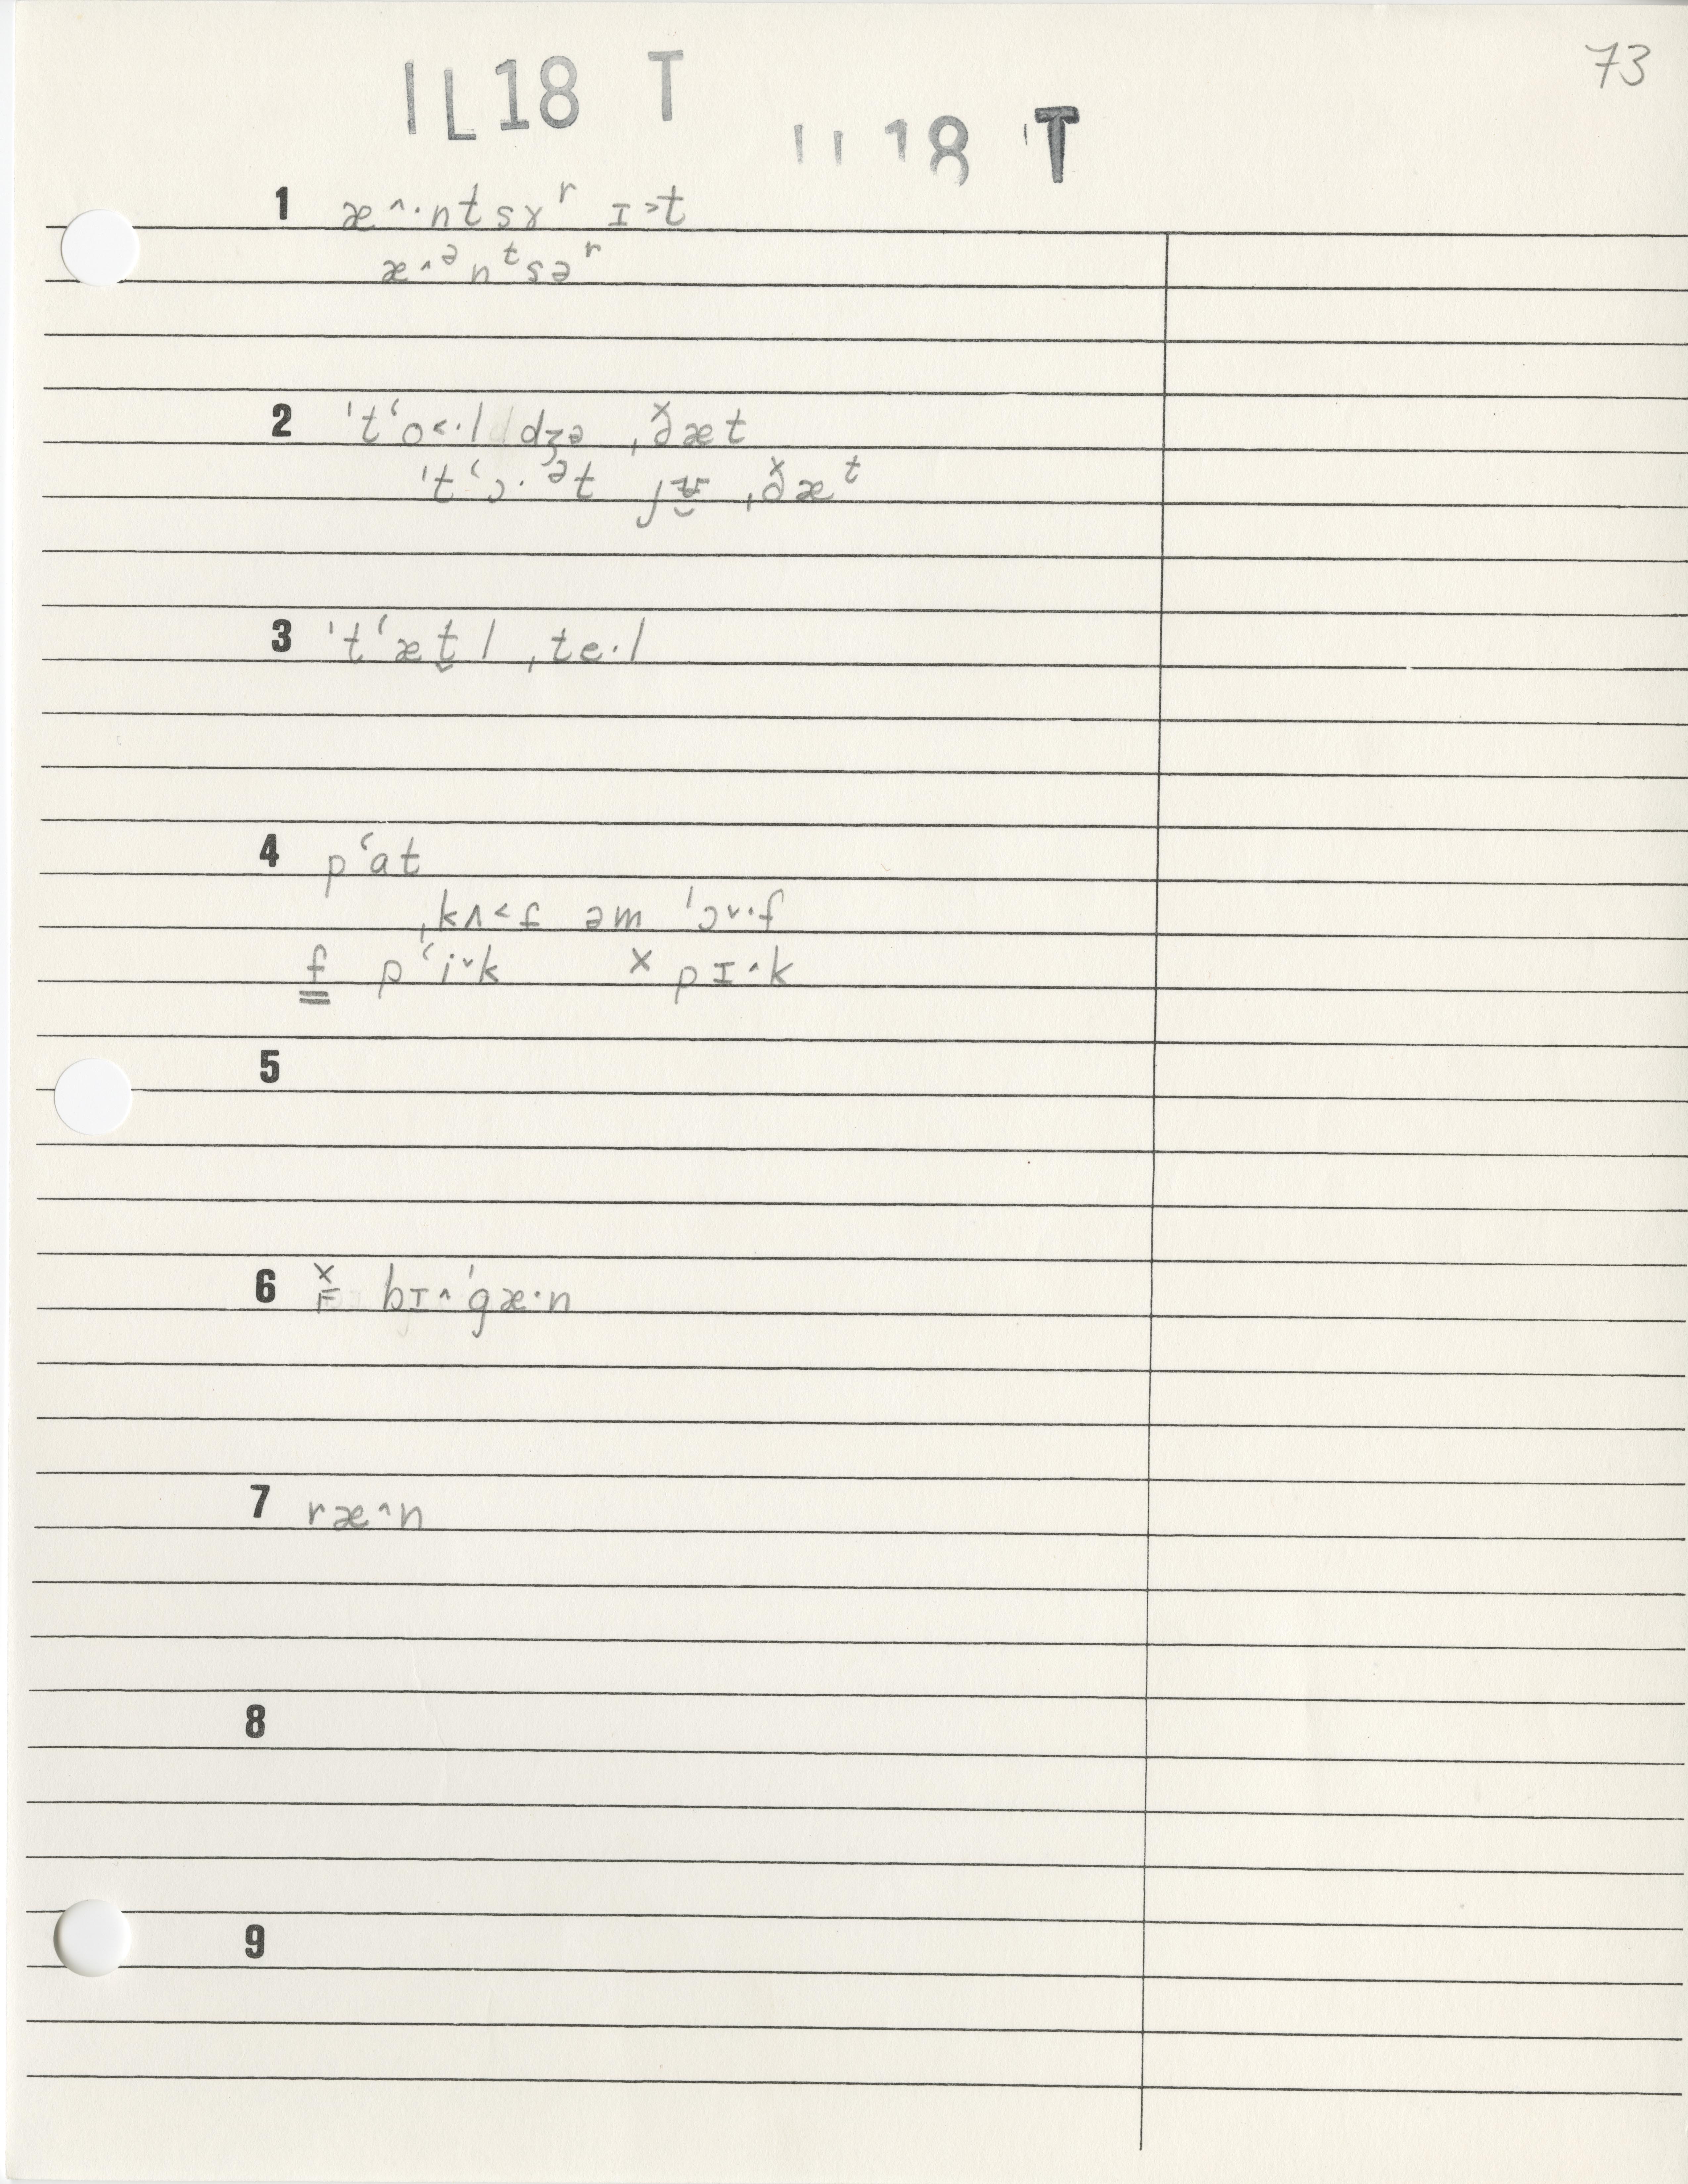 73
IL18 T
18 T
1 æ˄·ntsɤʳ ɪ˃t
æ˄ᵊnᵗsəʳ
2 ˈtʻo˂·l dʒə ˌðˣæt
ˈtʻɔ·ᵊt ˌðˣæᵗ
3 ˈtʻæt̬l ˌte·l
4 pʻat
ˌkʌ˂f əm ˈɔ˅·f
f pʻi˅k × pɪ˄k
5
6 × F bɪ˄ˈgæ·n
7 ræ˄n
8
9